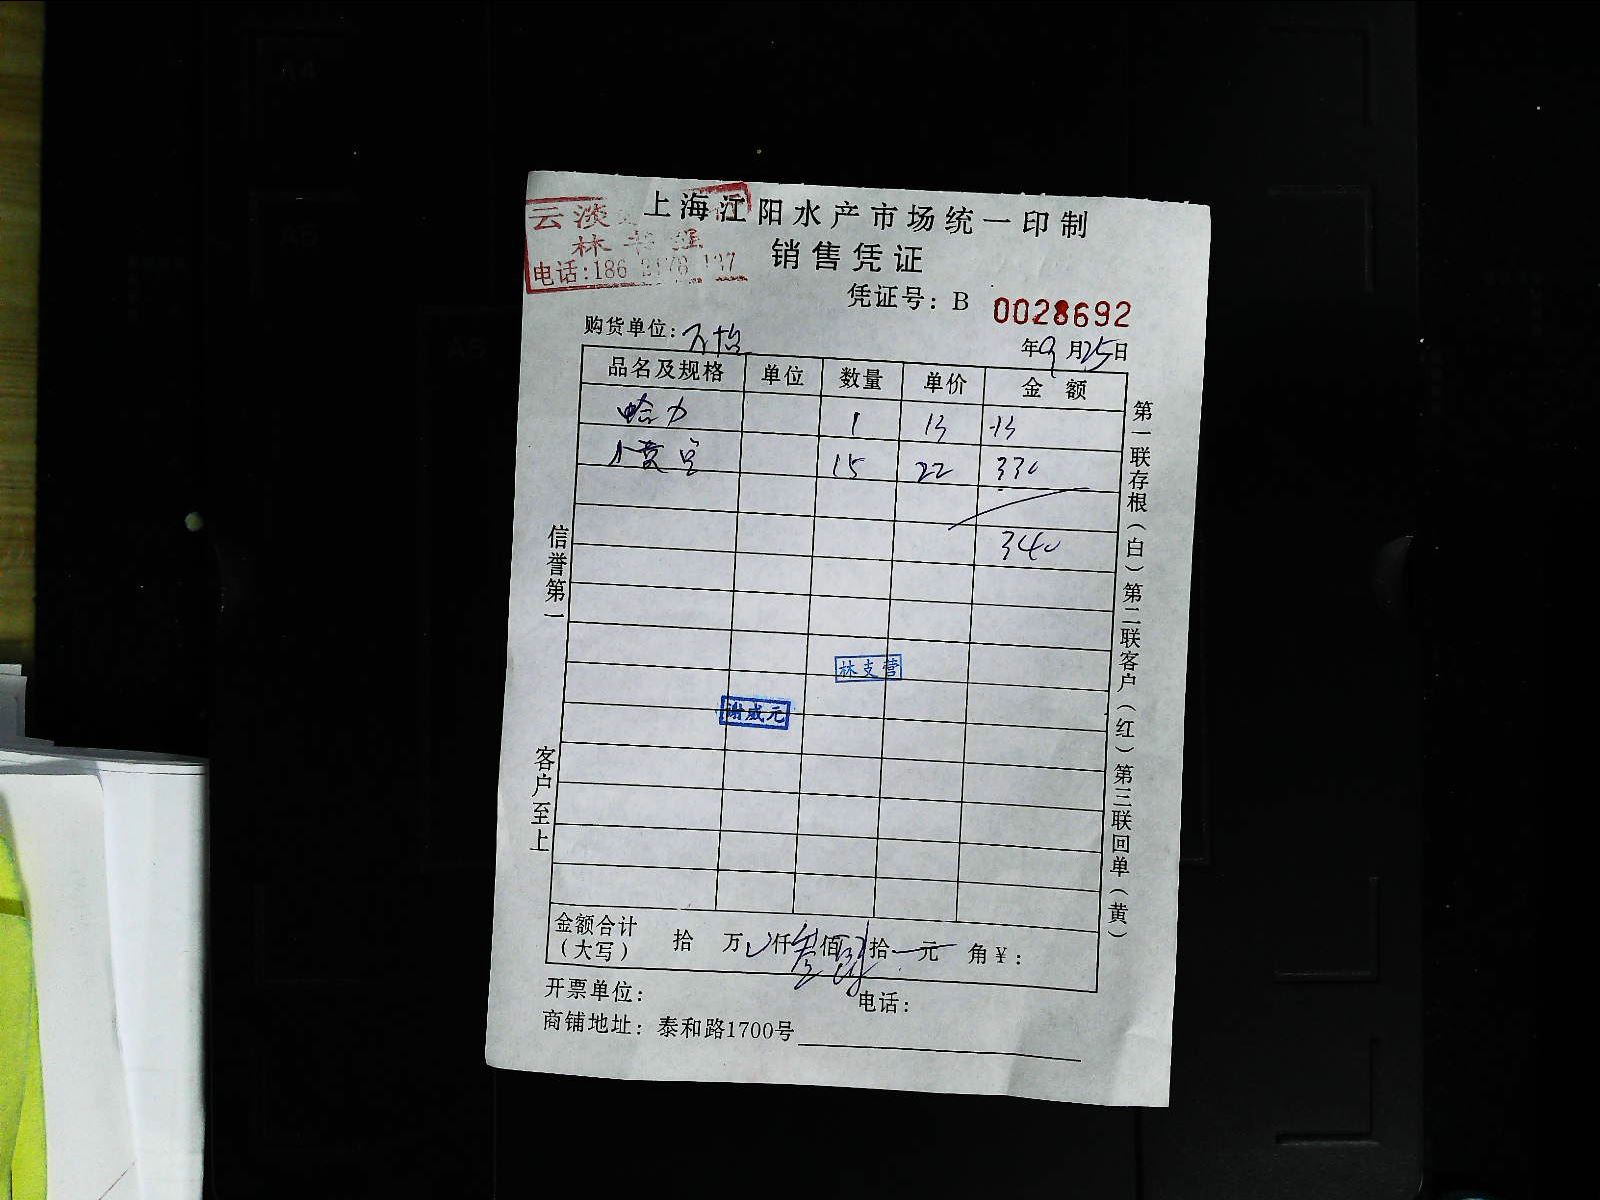 上海江阳水产市场统一印制
云淡
林书强
电话:186
销售凭证
凭证号: B 0028692
购货单位: 万怡
年9月25日
品名及规格 单位 数量 单价 金额
哈力 1 13 13
小黄鱼 15 22 330
340
林支营
谢成元
信誉第一
客户至上
第一联存根(白)第二联客户(红)第三联回单(黄)
金额合计(大写) 拾 万 仟叁佰肆拾 元 角¥:
开票单位: 电话:
商铺地址: 泰和路1700号
A4
A5
A5